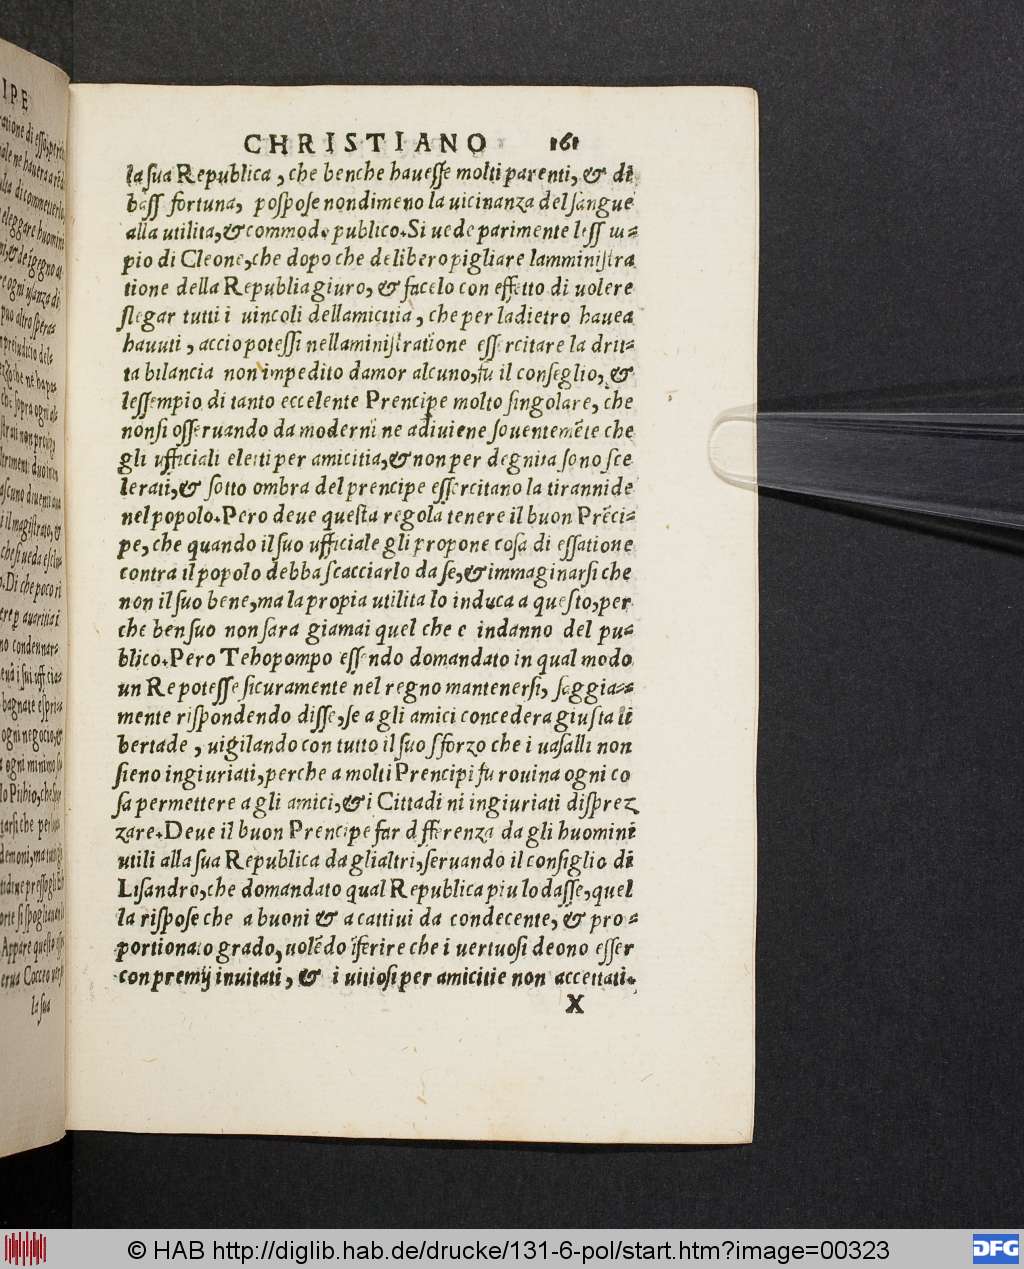 CHRISTIANO 161
la sua Republica, che benche hauesse molti parenti, & di
bass fortuna, pospose nondimeno la uicinanza del sangue
alla utilita, & commodo publico. Si uede parimente less m=
pio di Cleone, che dopo che delibero pigliare lamministra
tione della Republia giuro, & facelo con effetto di uolere
slegar tutti i uincoli dellamicitia, che per ladietro hauea
hauuti, accio potessi nellaministratione essercitare la drit=
ta bilancia non impedito damor alcuno, fu il conseglio, &
lessempio di tanto eccelente Prencipe molto singolare, che
nonsi osseruando da moderni ne adiuiene souentemēte che
gli ufficiali eletti per amicitia, & non per degnita sono sce
lerati, & sotto ombra del prencipe essercitano la tirannide
nel popolo. Pero deue questa regola tenere il buon Prēci=
pe, che quando il suo ufficiale gli propone cosa di essatione
contra il popolo debba scacciarlo da se, & immaginarsi che
non il suo bene, ma la propia utilita lo induca a questo, per
che ben suo non sara giamai quel che e indanno del pu=
blico. Pero Tehopompo essendo domandato in qual modo
un Re potesse sicuramente nel regno mantenersi, saggia=
mente rispondendo disse, se a gli amici concedera giusta li
bertade, uigilando con tutto il suo sforzo che i uasalli non
sieno ingiuriati, perche a molti Prencipi fu rouina ogni co
sa permettere a gli amici, & i Cittadini ingiuriati disprez
zare. Deue il buon Prencipe far d fferenza da gli huomini
utili alla sua Republica da glialtri, seruando il consiglio di
Lisandro, che domandato qual Republica piu lodasse, quel
la rispose che a buoni & a cattiui da condecente, & pro=
portionato grado, uolēdo īferire che i uertuosi deono esser
con premij inuitati, & i uitiosi per amicitie non accettati.
X
IPE
la sua
© HAB http://diglib.hab.de/drucke/131-6-pol/start.htm?image=00323
DFG